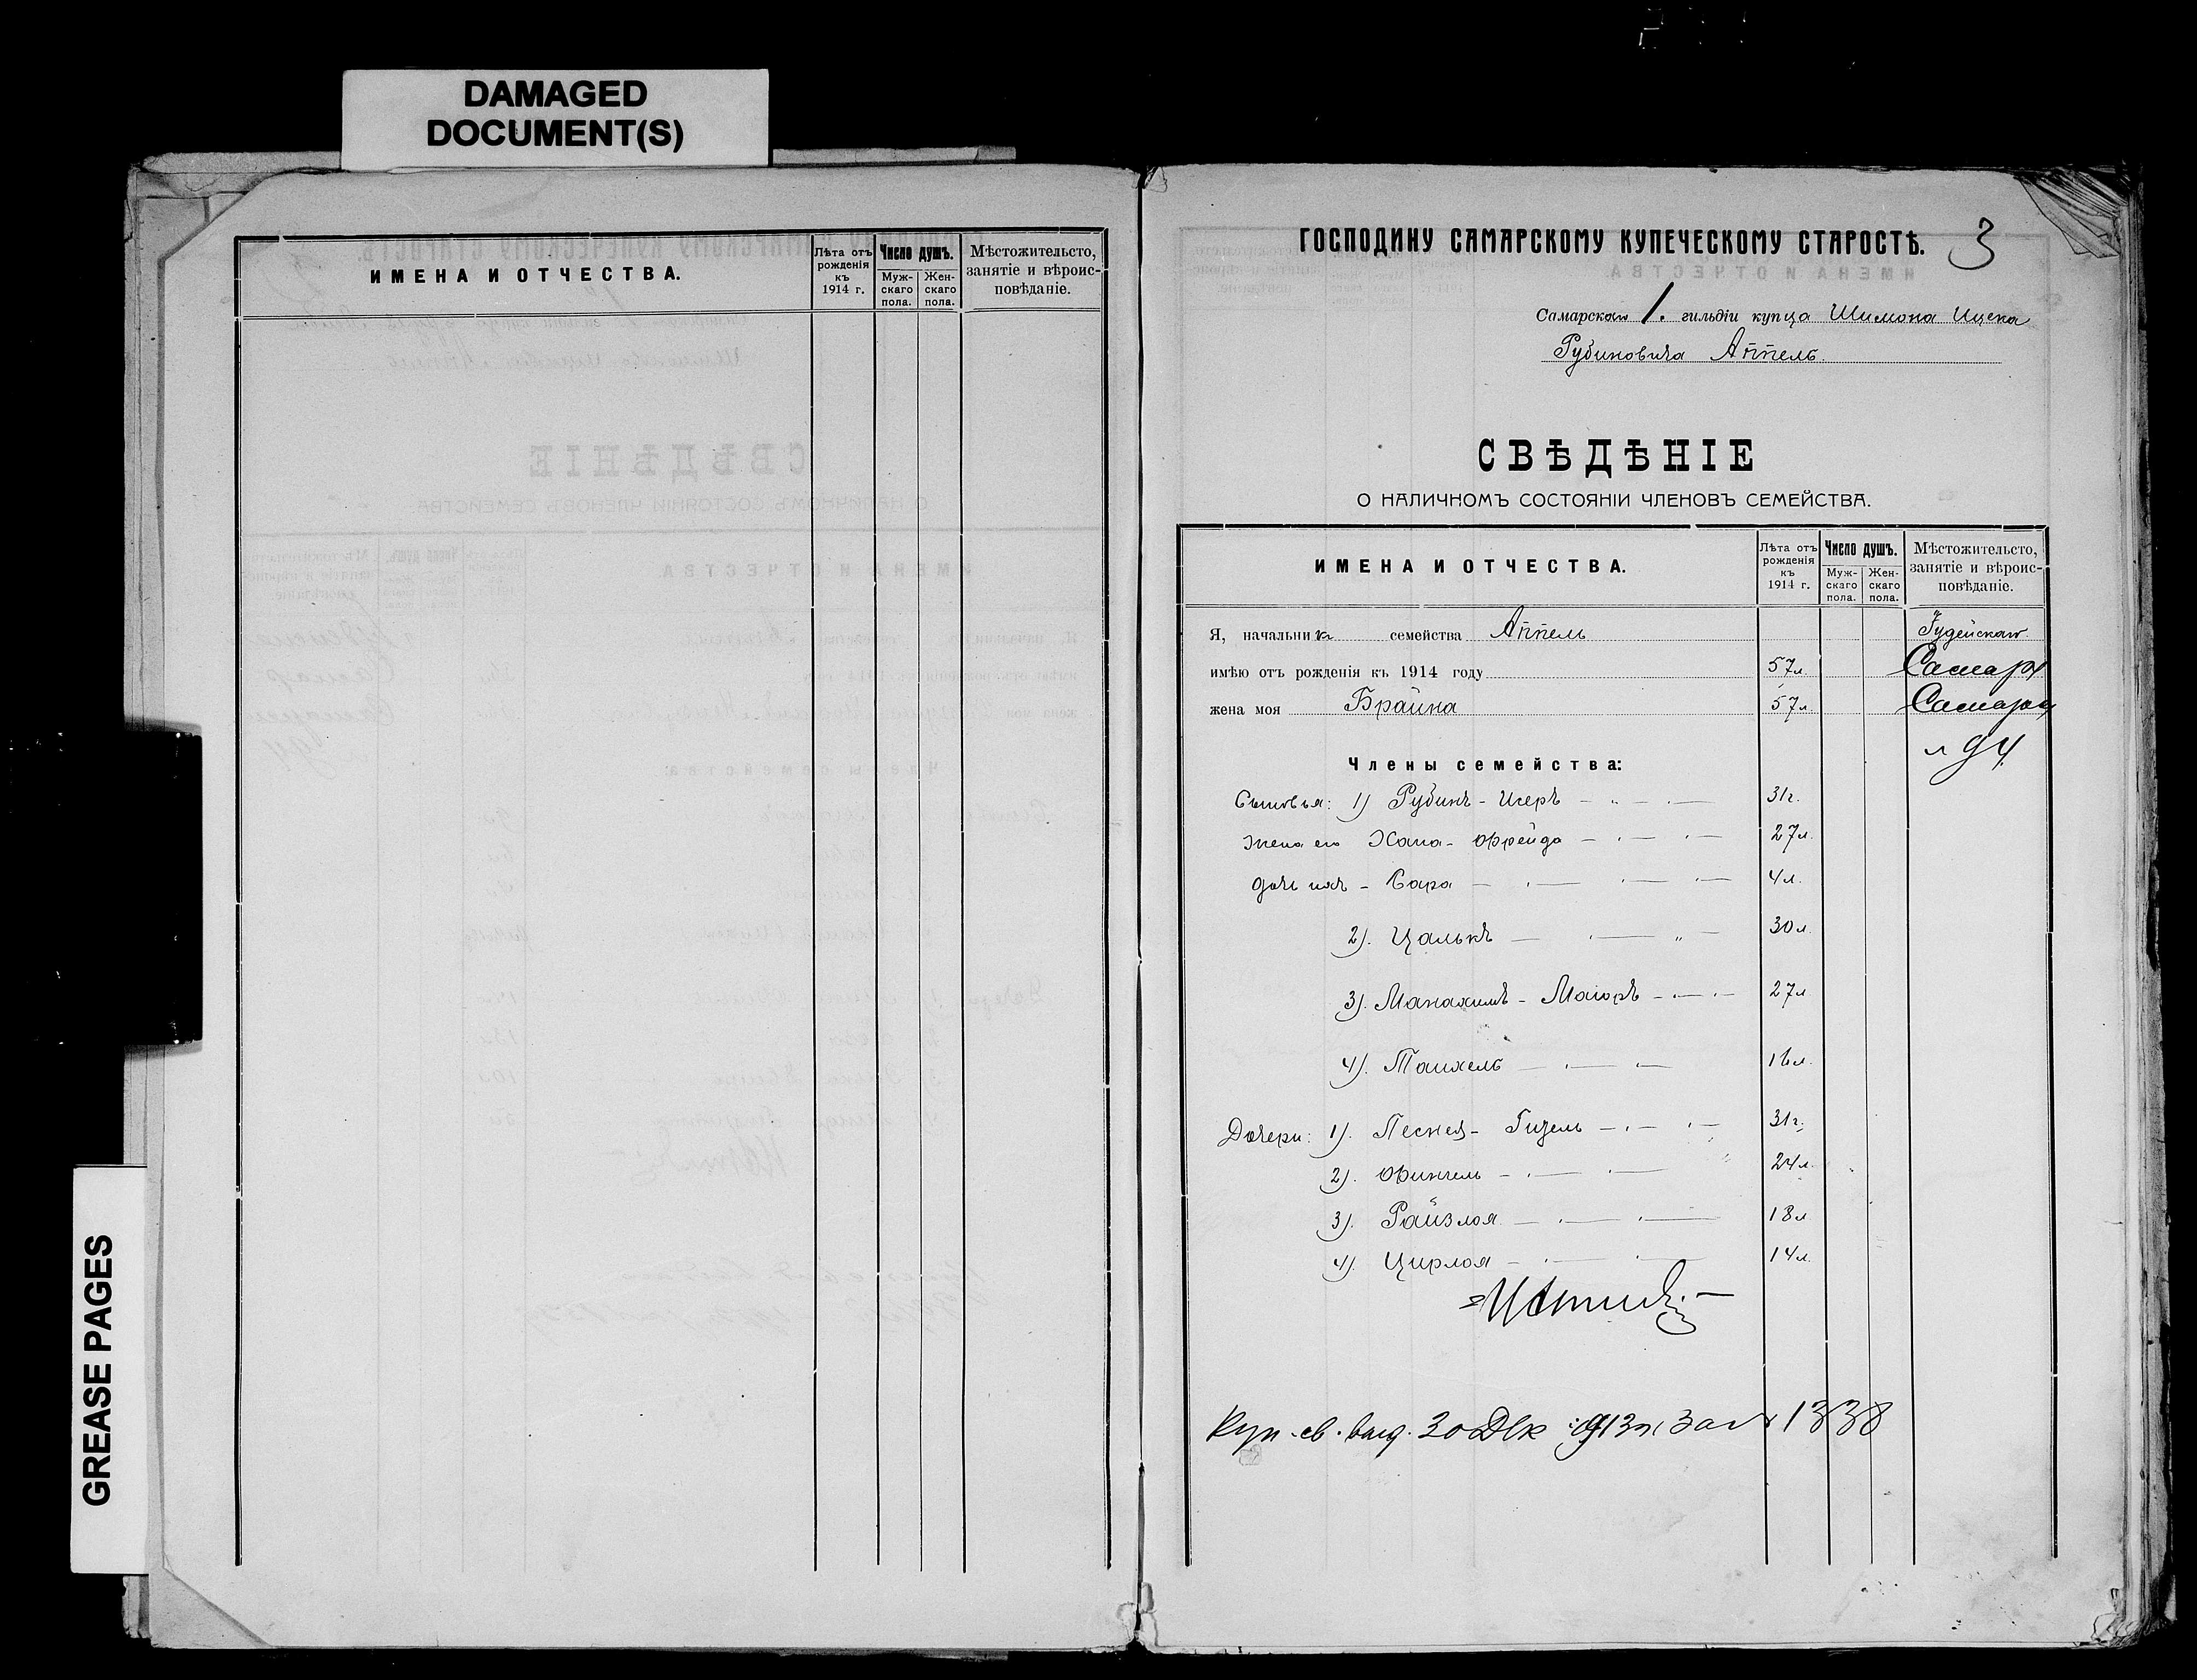 DAMAGED
DOCUMENT(S)
GREASE PAGES
ИМЕНА И ОТЧЕСТВА.
Лѣта отъ рожденія къ 1914 г.
Число душъ.
Муж-скаго пола.
Жен-скаго пола.
Мѣстожительсто, занятіе и вѣроис-повѣданіе.
ГОСПОДИНУ САМАРСКОМУ КУПЕЧЕСКОМУ СТАРОСТѢ. 3
Самарскаго 1. гильдіи купца Шимона Ицека
Рубиновича Аппель
СВѢДѢНІЕ
О НАЛИЧНОМЪ СОСТОЯНІИ ЧЛЕНОВЪ СЕМЕЙСТВА.
ИМЕНА И ОТЧЕСТВА.
Лѣта отъ рожденія къ 1914 г.
Число душъ.
Муж-скаго пола.
Жен-скаго пола.
Мѣстожительсто, занятіе и вѣроис-повѣданіе.
Я, начальник семейства Аппель Іудейскаго
имѣю отъ рожденія къ 1914 году 57л. Самара
жена моя Брайна 57л Самарск
Члены семейства:
Сыновья: 1) Рубинъ - Исеръ 31г.
жена его Хана - Фрейда 27л.
дочь ихъ - Сара 4л.
2). Цалькъ 30л.
3). Манахимъ - Маіоръ 27л.
4). Танхель 16л.
Дочери: 1). Песнея - Гизель 31г.
2). Фингель 24л.
3). Райзлоя 18л
4). Цирлоя 14л.
Куп. св. выд. 30 Дек 1913 г. за № 1338